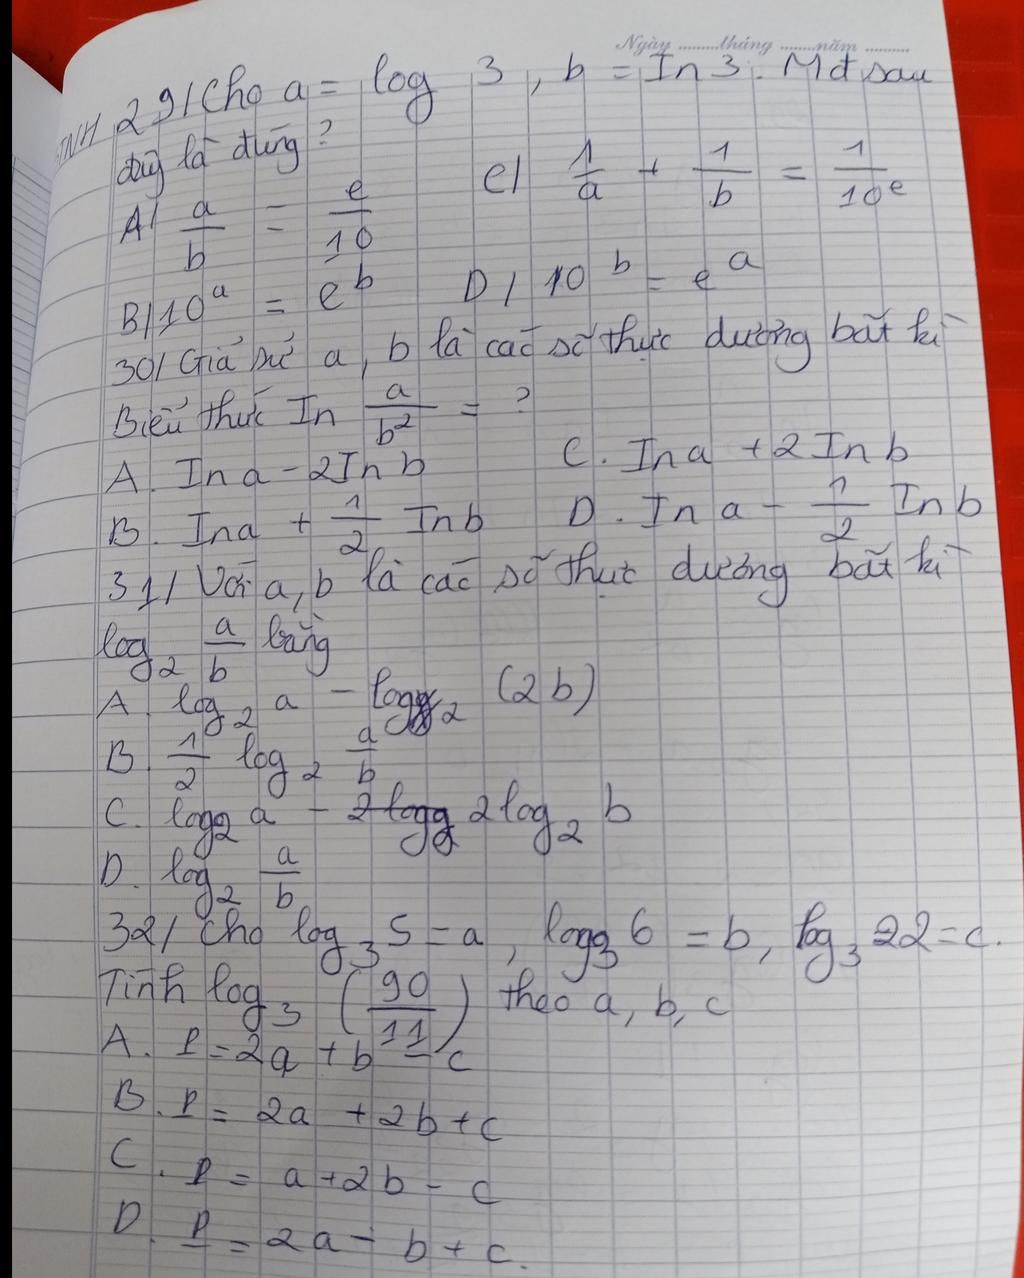 Ngày ........tháng ........năm ..........
29/ Cho a = log 3, b = In 3. Mđ sau
đây là đúng?
A/ a/b = e/10 C/ 1/a + 1/b = 1/10^e
B/ 10^a = e^b D/ 10^b = e^a
30/ Giả sử a, b là các số thực dương bất kì
Biểu thức In a/b² = ?
A. In a - 2In b C. In a + 2 In b
B. Ina + 1/2 Inb D. In a - 1/2 In b
31/ Với a, b là các số thực dương bất kì
log₂ a/b bằng
A. log₂ a - log₂ (2b)
B. 1/2 log₂ a/b
C. log₂ a - 2log₂ b
D. log₂ a/b
32/ Cho log₃ 5 = a, log₃ 6 = b, log₃ 22 = c.
Tính log₃ (90/11) theo a, b, c
A. P = 2a + b - c
B. P = 2a + 2b + c
C. P = a + 2b - c
D. P = 2a - b + c.